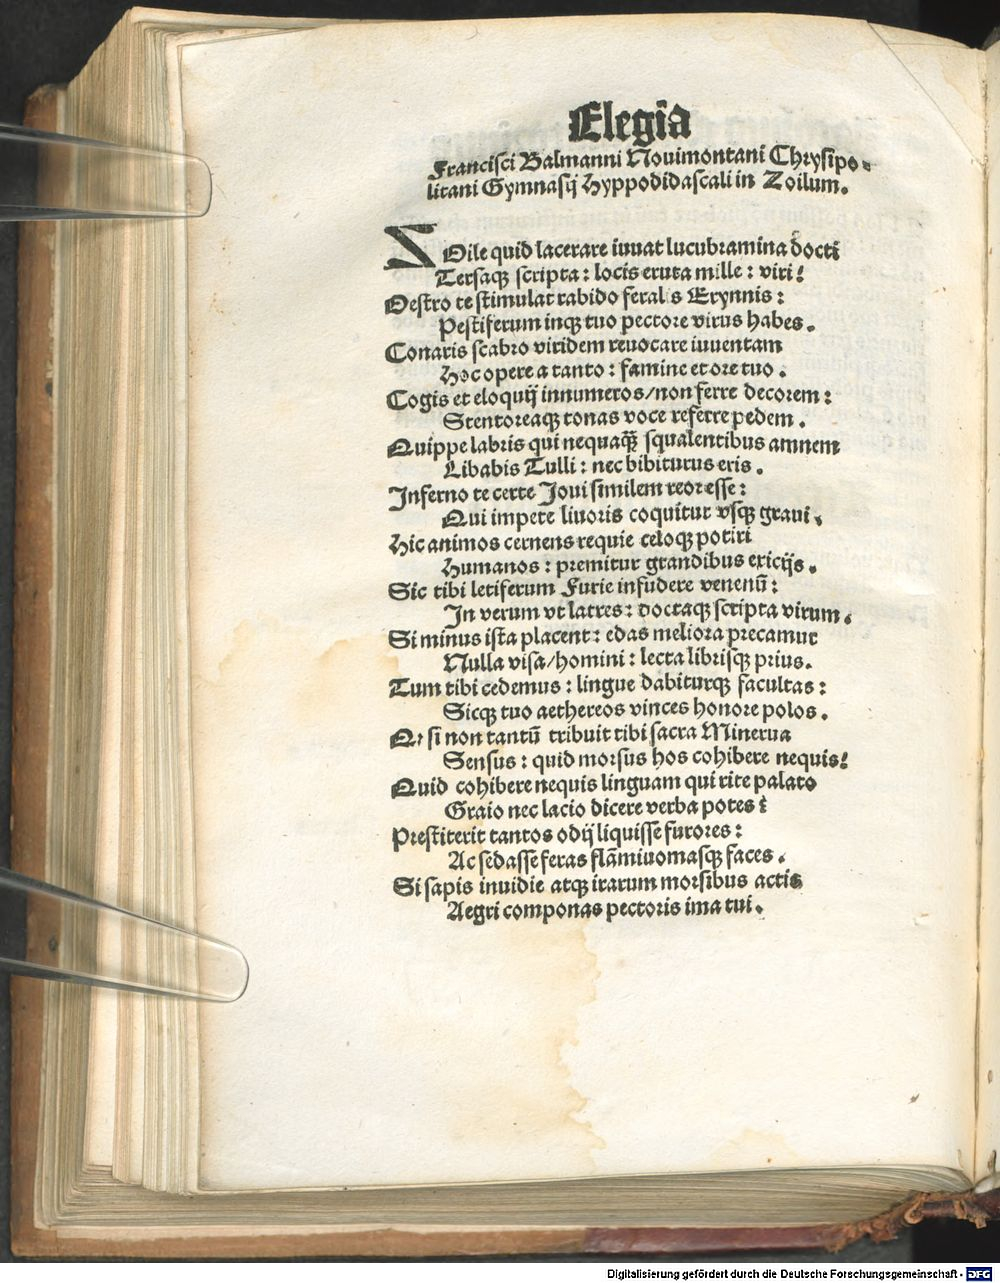 Elegia
Francisci Balmanni Nouimontani Chrysipo-
litani Gymnasij Hyppodidascali in Zoilum.
ZOile quid lacerare iuuat lucubramina docti
Tersaqꝫ scripta: locis eruta mille: viri!
Oestro te stimulat rabido feralis Erynnis:
Pestiferum inqꝫ tuo pectore virus habes.
Conaris scabro viridem reuocare iuuentam
Hoc opere a tanto: famine et ore tuo.
Cogis et eloquij innumeros/non ferre decorem:
Stentoreaqꝫ tonas voce referre pedem.
Quippe labris qui nequaqȝ̃ squalentibus amnem
Libabis Tulli: nec bibiturus eris.
Inferno te certe Ioui similem reor esse:
Qui impete liuoris coquitur vsqꝫ graui.
Hic animos cernens requie celoqꝫ potiri
Humanos: premitur grandibus exicijs.
Sic tibi letiferum Furie infudere venenū:
In verum vt latres: doctaqꝫ scripta virum.
Si minus ista placent: edas meliora precamur
Nulla visa/homini: lecta librisqꝫ prius.
Tum tibi cedemus: lingue dabiturqꝫ facultas:
Sicqꝫ tuo aethereos vinces honore polos.
Qꝛ si non tantū tribuit tibi sacra Minerua
Sensus: quid morsus hos cohibere nequis!
Quid cohibere nequis linguam qui rite palato
Graio nec lacio dicere verba potes?
Prestiterit tantos odij liquisse furores:
Ac sedasse feras flāmiuomasqꝫ faces.
Si sapis inuidie atqꝫ irarum morsibus actis
Aegri componas pectoris ima tui.
Digitalisierung gefördert durch die Deutsche Forschungsgemeinschaft - DFG